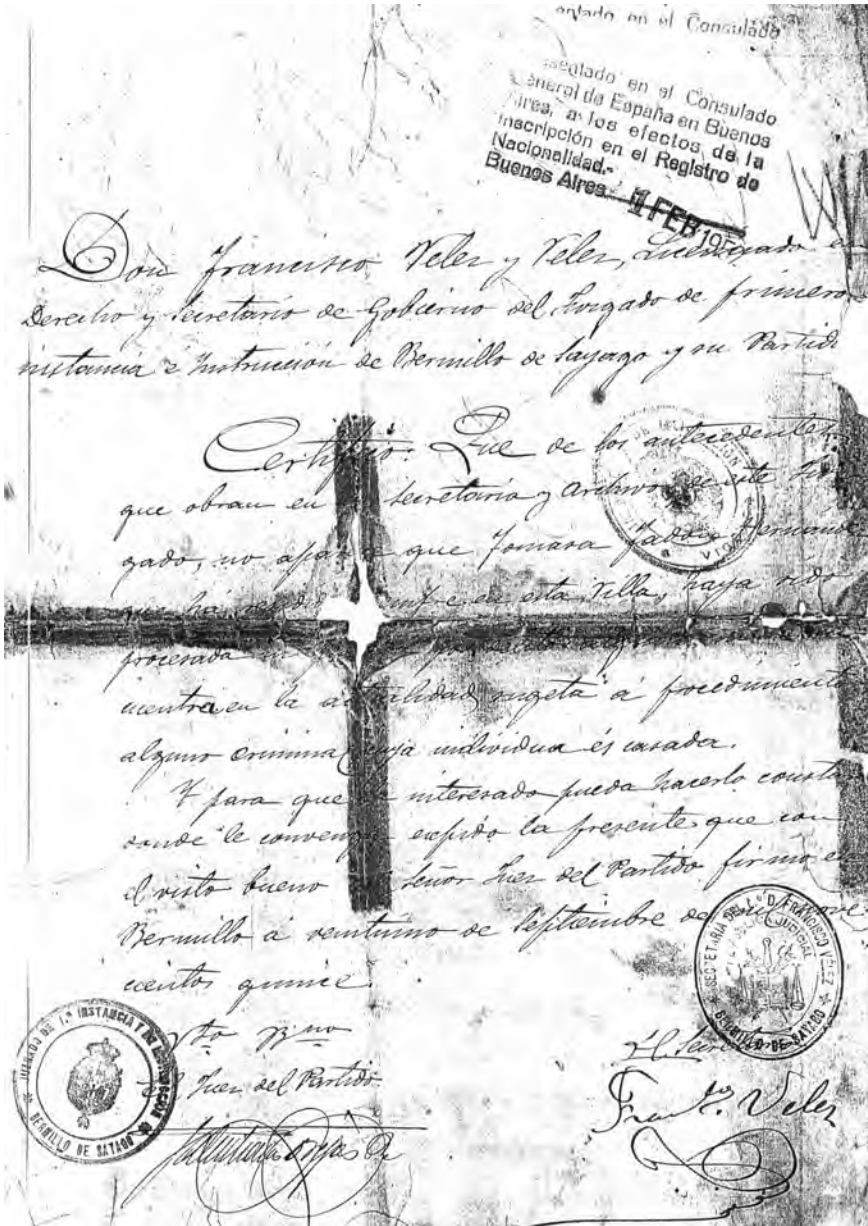 entado en el Consulado
sentado en el Consulado
General de España en Buenos
Aires, a los efectos de la
inscripción en el Registro de
Nacionalidad.-
Buenos Aires 1 FEB 195
Don Francisco Velez y Velez, Licenciado en
Derecho y Secretario de Gobierno del Juzgado de primera
instancia é Instrucción de Bermillo de Sayago y su Partido
Certifico: Que de los antecedentes
que obran en Secretaria y Archivo de este Juz
gado, no aparece que Tomasa Hernandez
que ha en esta Villa, haya sido
procesada
cuentra en la actualidad sugeta á procedimiento
alguno criminal cuya individua és casada.
Y para que la interesada pueda hacerlo constar
donde le convenga expido la presente que con
el visto bueno del Señor Juez del Partido firmo en
Bermillo á veintiuno de Septiembre de mil nove
cientos quince.
Vto Bno
El Juez del Partido
El Secretario
Franco Velez
JUZGADO DE 1ª INSTANCIA Y DE INSTRUCCION
BERMILLO DE SAYAGO
SECRETARIA DEL Ldo D. FRANCISCO VELEZ
JUDICIAL
BERMILLO DE SAYAGO
VIGO